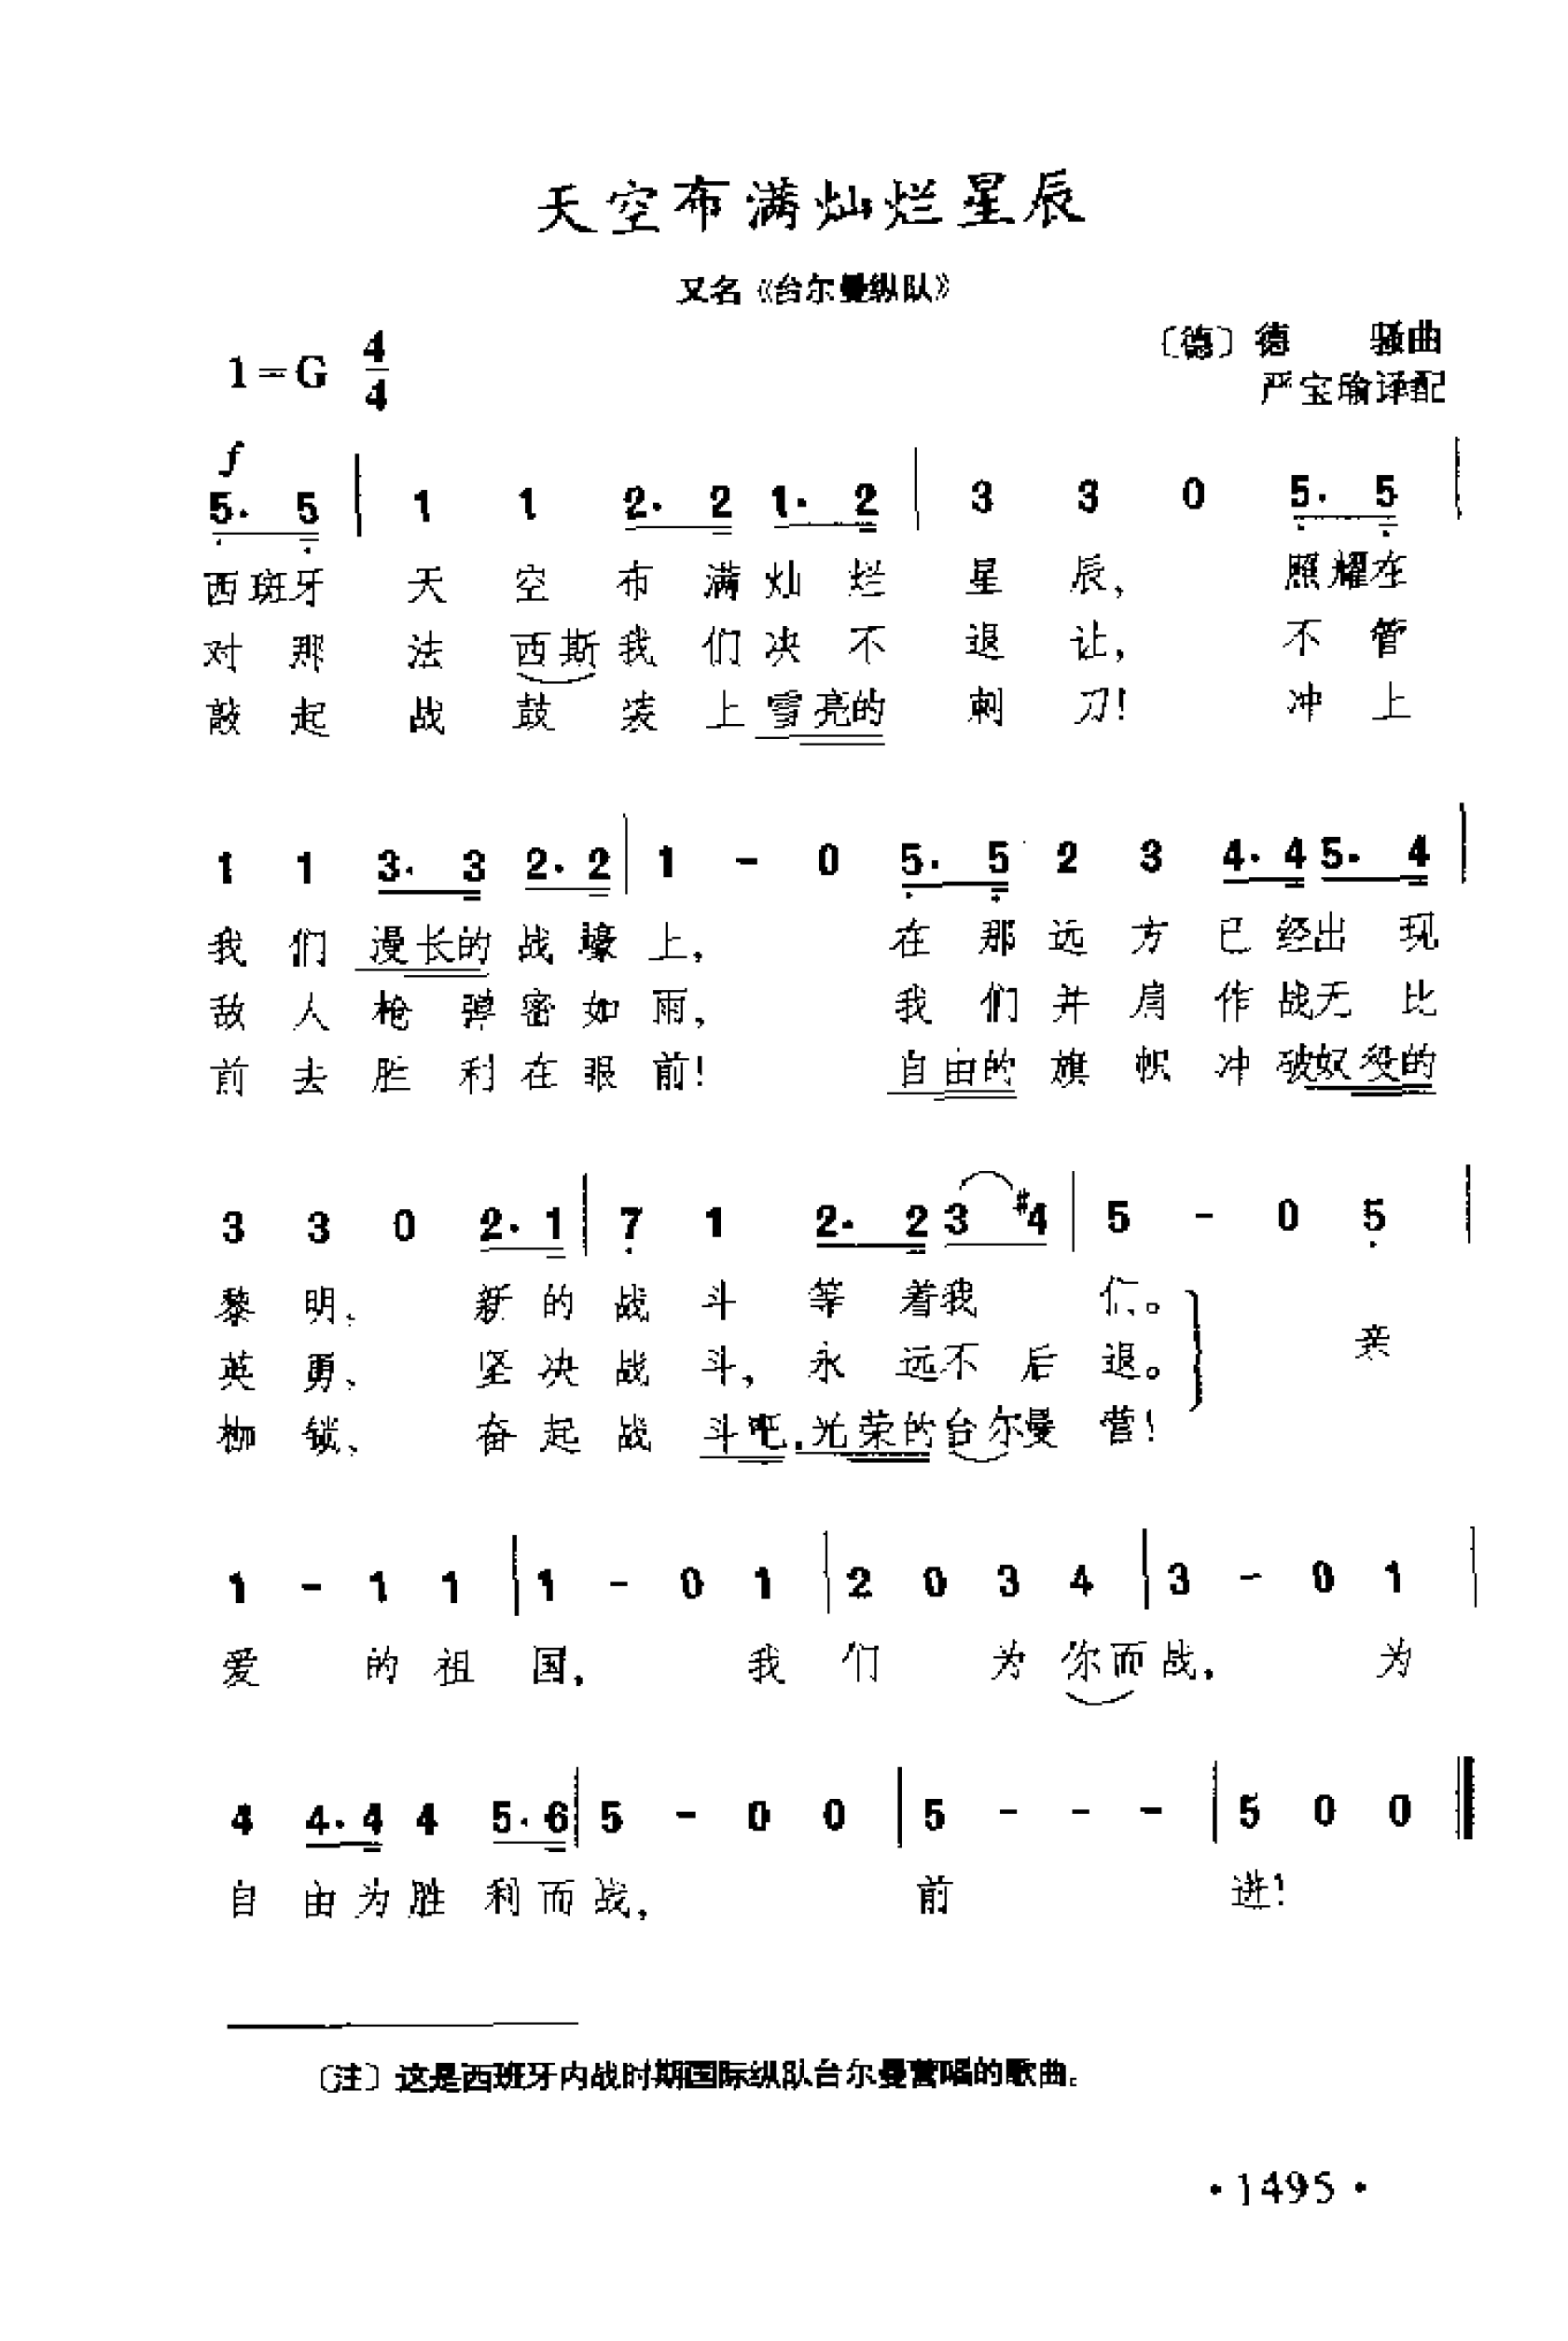 天空布满灿烂星辰
又名《台尔曼纵队》
1=G 4/4
〔德〕德 骚曲
严宝瑜译配
f
5. 5 | 1 1 2. 2 1. 2 | 3 3 0 5. 5 |
西班牙 天 空 布 满 灿 烂 星 辰， 照耀在
对 那 法 西斯 我 们 决 不 退 让， 不 管
敲 起 战 鼓 装 上 雪亮的 刺 刀！ 冲 上
1 1 3. 3 2. 2 | 1 - 0 5. 5 2 3 4. 4 5. 4 |
我 们 漫长的 战 壕 上， 在 那 远 方 已 经 出 现
敌 人 枪 弹 密 如 雨， 我 们 并 肩 作 战 无 比
前 去 胜 利 在 眼 前！ 自由的 旗 帜 冲 破 奴役的
3 3 0 2. 1 | 7 1 2. 2 3 #4 | 5 - 0 5 |
黎 明、 新 的 战 斗 等 着 我 们。
英 勇、 坚 决 战 斗， 永 远 不 后 退。 亲
枷 锁、 奋 起 战 斗吧，光荣的 台尔曼 营！
1 - 1 1 | 1 - 0 1 | 2 0 3 4 | 3 - 0 1 |
爱 的 祖 国， 我 们 为 你而 战， 为
4 4. 4 4 5. 6 | 5 - 0 0 | 5 - - - | 5 0 0 ‖
自 由 为 胜 利 而 战， 前 进！
〔注〕这是西班牙内战时期国际纵队台尔曼营唱的歌曲。
·1495·